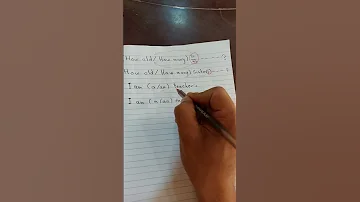 How old/ How many)
How old/ How many) Sisters
I am (a/an) teacher.
I am (a/an)